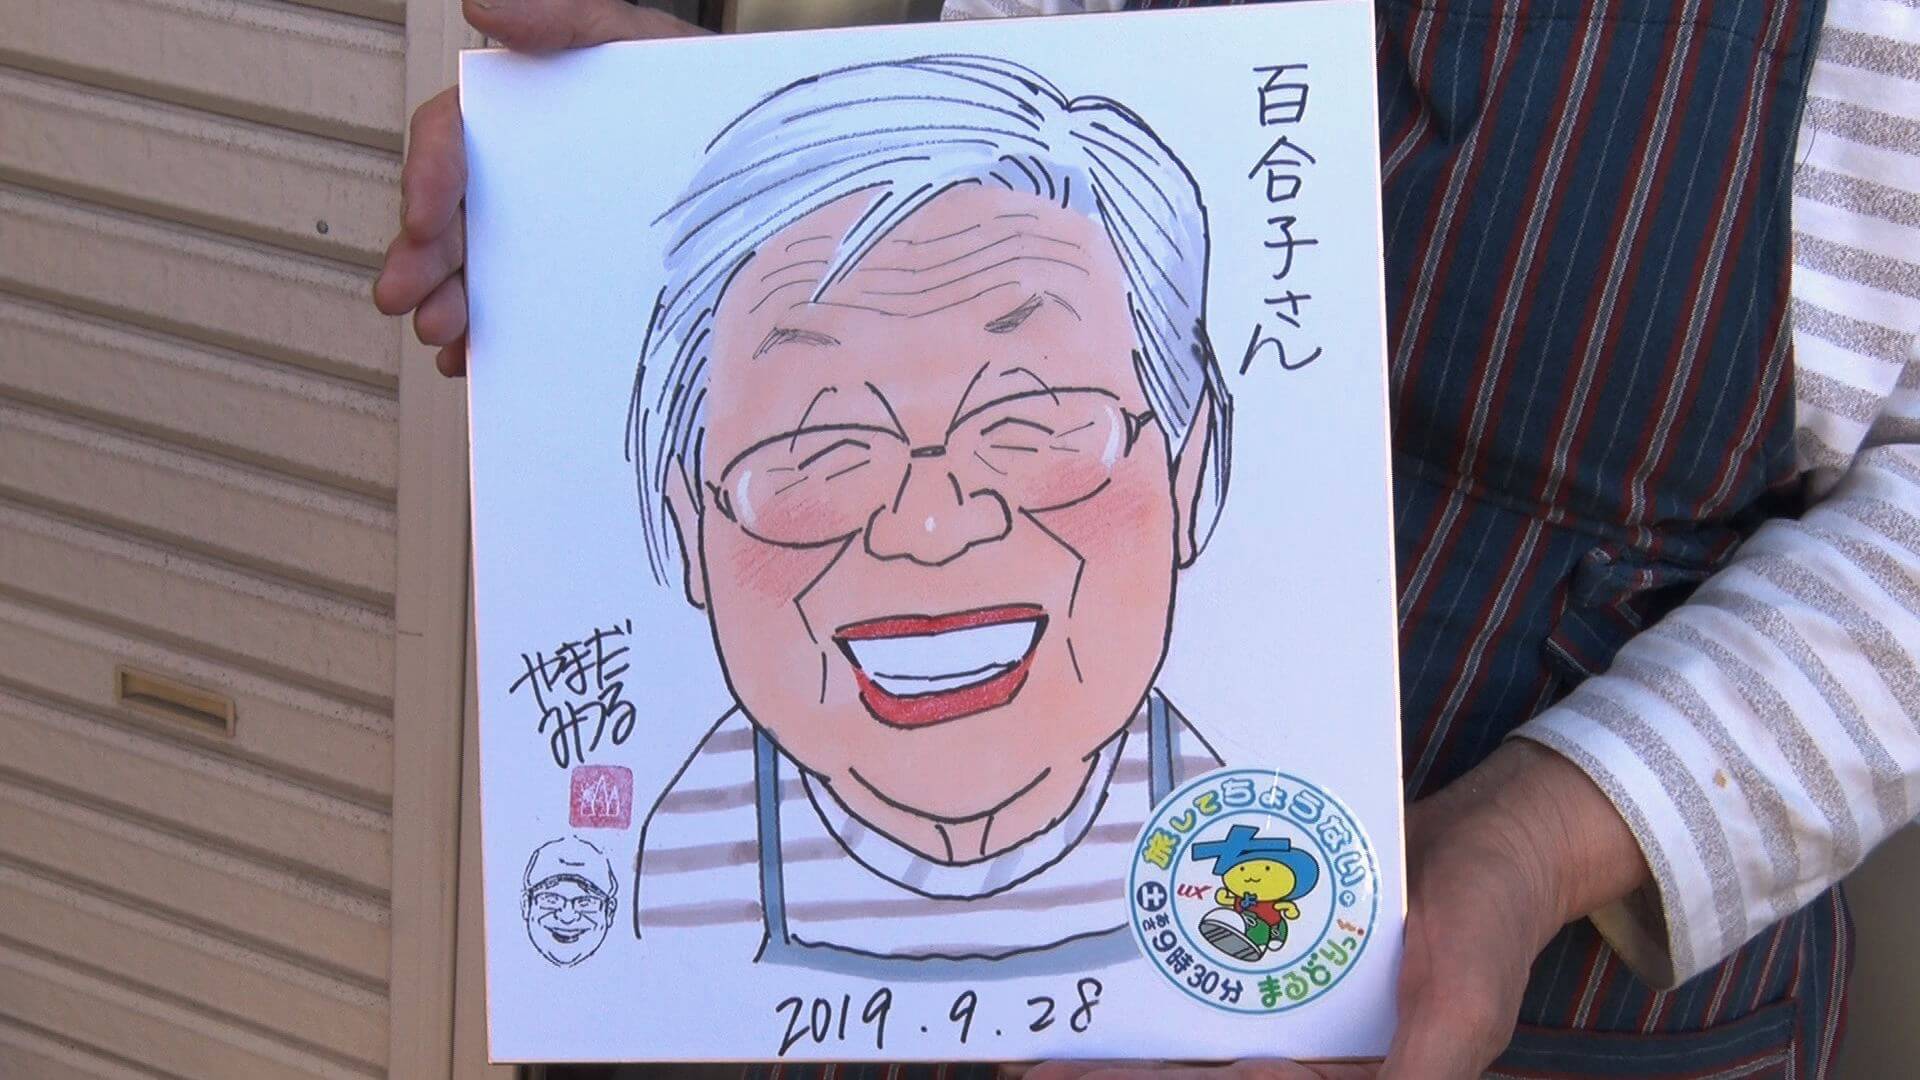 百合子さん
やまだ
みつる
旅してちょうない。
UX
土
あさ
9時30分
まるどりっ!
2019.9.28